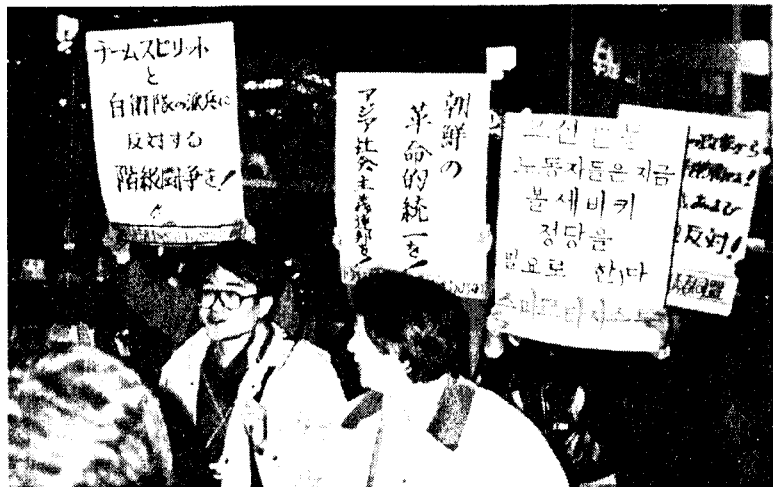 チームスピリット
と
自衛隊の派兵に
反対する
階級闘争を!
朝鮮の
革命的統一を!
アジア社会主義連邦を!
조선반도
노동자들은 지금
볼세비키
정당을
필요로 한다
스파르타시스트
から
および
反対!
同盟